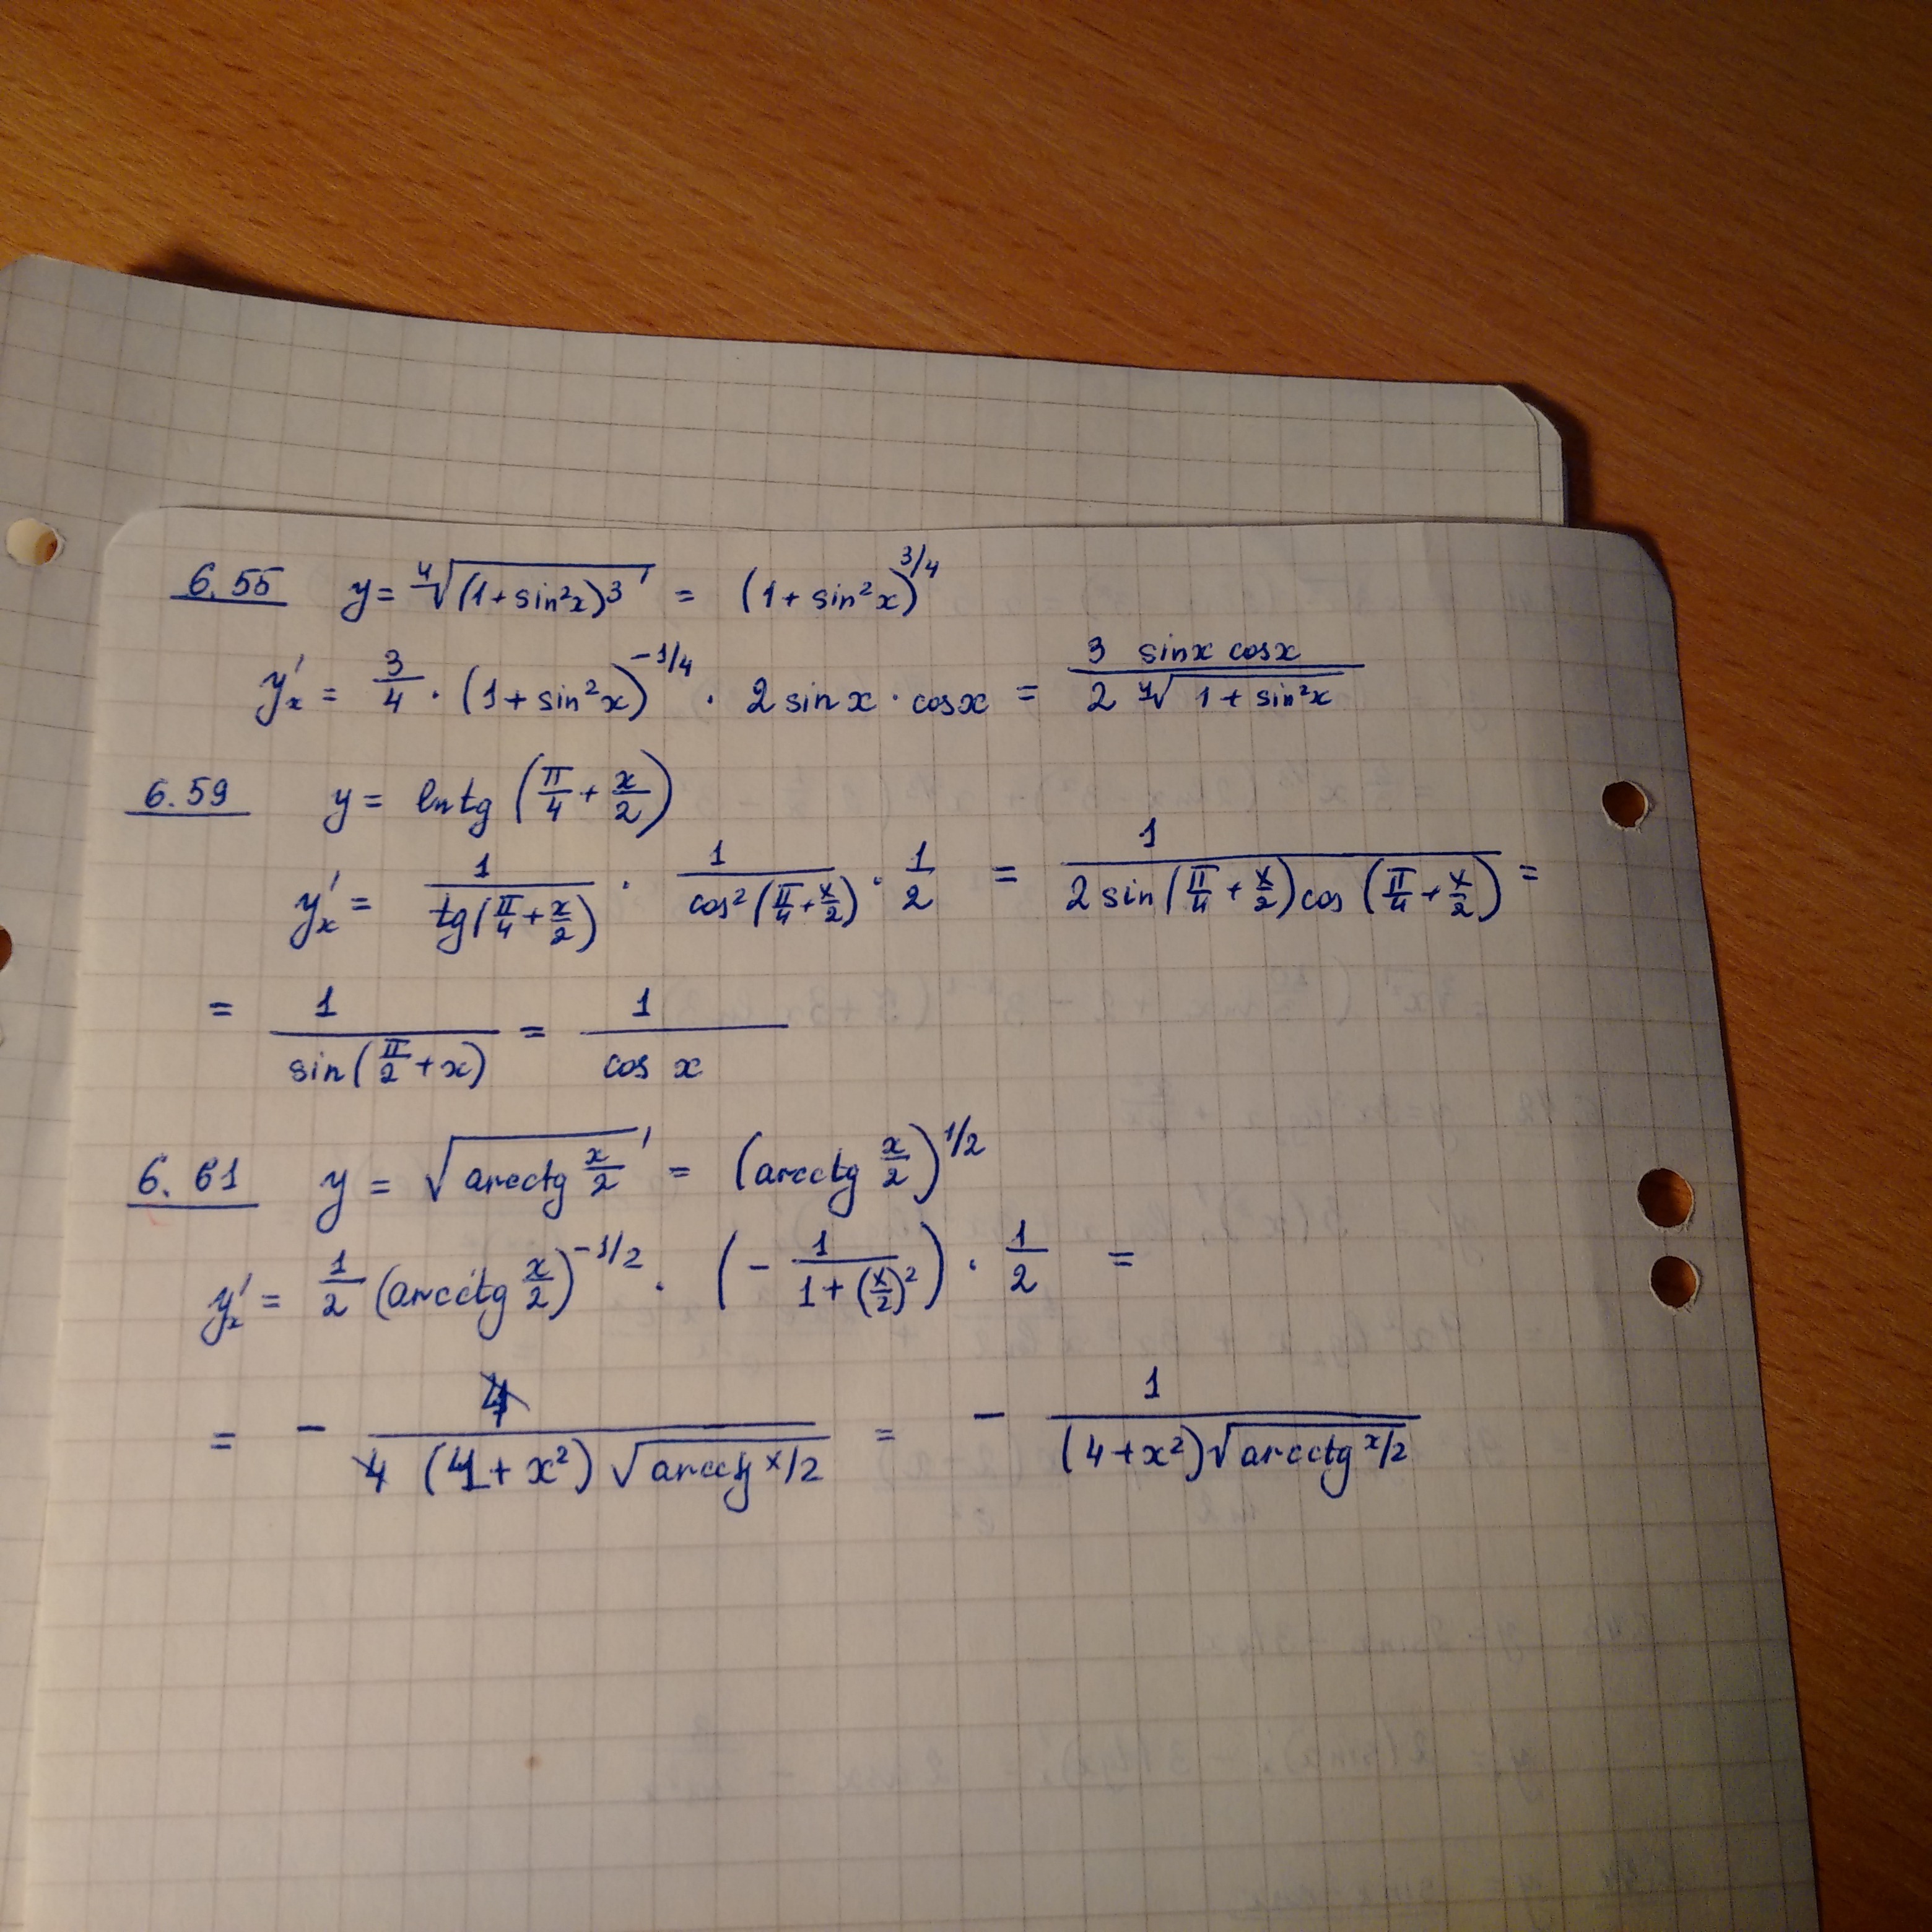 6.55 y = ∜((1+sin²x)³) = (1+sin²x)^3/4
y'ₓ = 3/4 · (1+sin²x)^-1/4 · 2 sin x · cos x = 3 sinx cosx / 2 ∜(1+sin²x)
6.59 y = ln tg (π/4 + x/2)
y'ₓ = 1/tg(π/4 + x/2) · 1/cos²(π/4 + x/2) · 1/2 = 1/(2 sin(π/4 + x/2) cos(π/4 + x/2)) =
= 1/sin(π/2 + x) = 1/cos x
6.61 y = √(arcctg x/2) = (arcctg x/2)^1/2
y'ₓ = 1/2 (arcctg x/2)^-1/2 · (- 1/(1+(x/2)²)) · 1/2 =
= - 4/(4 (4+x²) √(arcctg x/2)) = - 1/((4+x²)√(arcctg x/2))